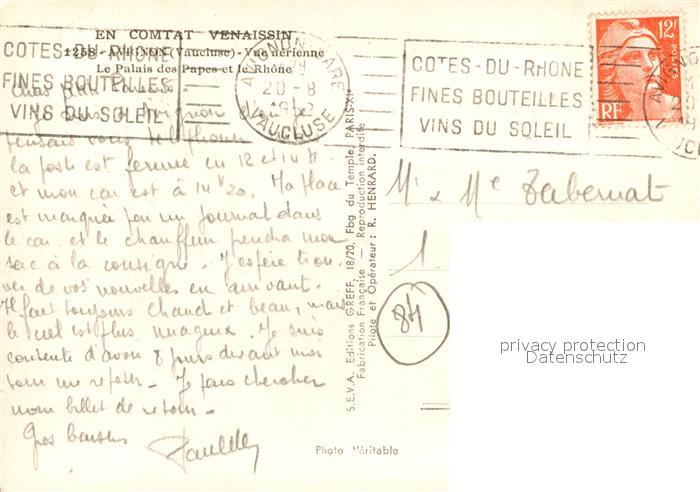 EN COMTAT VENAISSIN
1258 - AVIGNON (Vaucluse) - Vue aérienne
Le Palais des Papes et le Rhône
COTES-DU-RHONE
FINES BOUTEILLES
VINS DU SOLEIL
AVIGNON GARE
20-8
VAUCLUSE
COTES-DU-RHONE
FINES BOUTEILLES
VINS DU SOLEIL
12F
POSTES
RF
pensais vous téléphoner
la poste est fermée en 12 et 14 h
et mon car est à 14h20. Ma place
est marquée par un journal dans
le car et le chauffeur prendra mon
sac à la consigne. J'espère trou-
ver de vos nouvelles en arrivant.
Il fait toujours chaud et beau, mais
le ciel est plus nuageux. Je suis
contente d'avoir 8 jours devant moi
pour me reposer - Je pars chercher
mon billet de retour -
Gros baisers
S.E.V.A. Editions GREFF, 18/20, Fbg du Temple, PARIS-XIe
Fabrication Française — Reproduction interdite
Pilote et Opérateur : R. HENRARD.
Photo Véritable
Mr & Me Tabernat
1.
84
privacy protection
Datenschutz